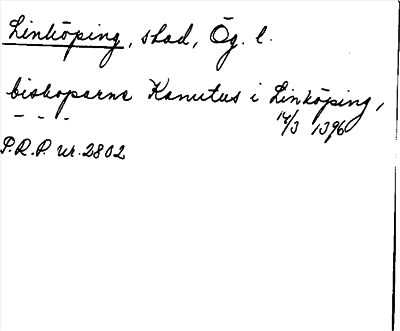 Linköping, stad, Ög. l.
biskoparne Kanutus i Linköping,
- - - 14/3 1396
P.R.P. nr. 2802